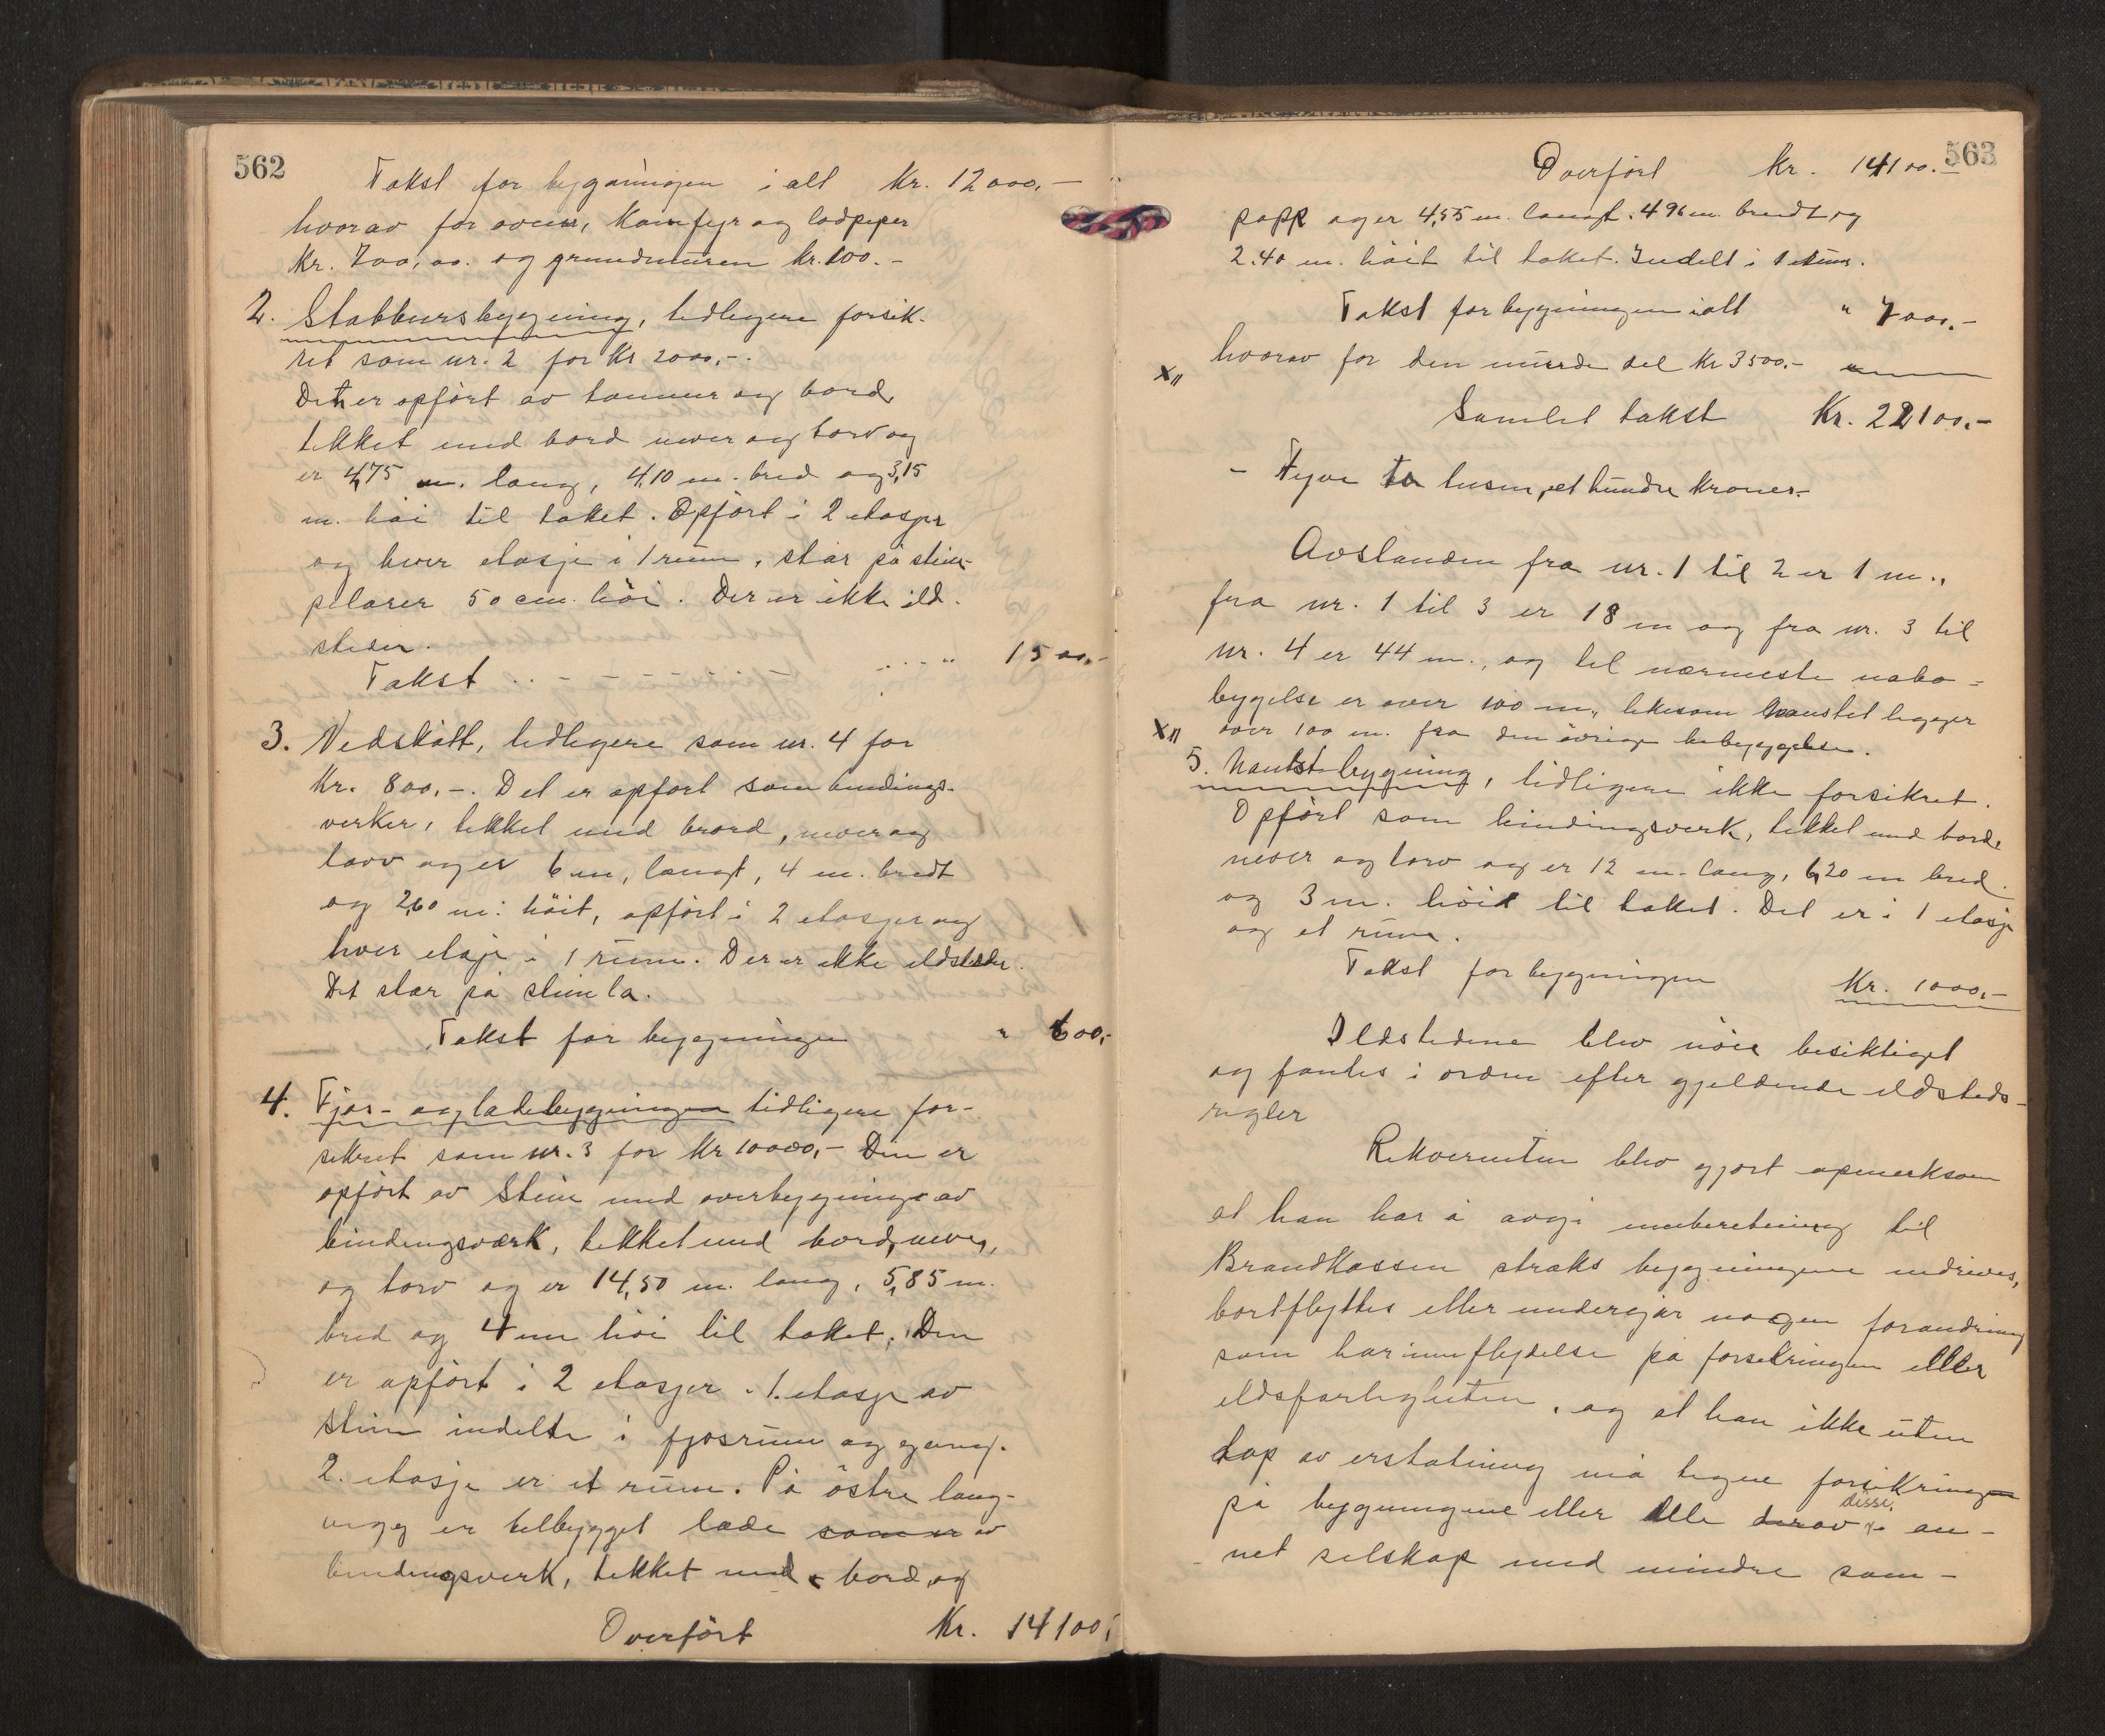 562
Takst for bygningen i alt Kr. 12000,-
hvorav for ovner, komfyr og lodpiper
Kr. 700,00. og grundmuren kr. 100.-
2. Stabbursbygning, tidligere forsik-
ret som nr. 2 for Kr 2000,-.
Den er opført av tømmer og bord,
tekket med bord never og torv og
er 4,75 m. lang, 4,10 m. bred og 3,15
m. høi til taket. Opført i 2 etasjer
og hver etasje i 1 rum, står på sten-
pelarer 50 cm. høi. Der er ikke ild-
steder.
Takst . . - - - - - - . . . . " 1500,-
3. Vedskått, tidligere som nr. 4 for
Kr. 800,-. Det er opført som bindings-
verker, tekket med brord, never og
torv og er 6 m, langt, 4 m. bredt
og 2,60 m. høit, opført i 2 etasjer og
hver etasje i 1 rum. Der er ikke ildsteder.
Det står på stenla.
Takst for bygningen " 600,-
4. Fjøs- og ladebygningen tidligere for-
sikret som nr. 3 for Kr 10000,- Den er
opført av Sten med overbygning av
bindingsværk, tekket med bord, never,
og torv og er 14,50 m. lang, 5,85 m.
bred og 4 m høi til taket. Den
er opført i 2 etasjer. 1. etasje av
sten indelte i fjøsrum og gang.
2. etasje er et rum. På østre lang-
vegg er tilbygget lade som er av
bindingsverk, tekket med bord, og
Overført Kr. 14100,-
563
Overført Kr. 14100.-
papp og er 4,55 m. langt. 4 96 m. bredt og
2.40 m. høit til taket. Indelt i 1 etum.
Takst for bygningen i alt " 7000,-
x,, hvorav for den murede del Kr 3500.-
Samlet takst Kr. 22100,-
- Tyve to tusen, et hundre kroner.-
Avstanden fra nr. 1 til 2 er 1 m.,
fra nr. 1 til 3 er 18 m og fra nr. 3 til
nr. 4 er 44 m., og til nærmeste nabo-
bygelse er over 100 m., likesom Naustet ligger
x,, over 100 m. fra den øvrige bebyggelse.
5. Naustbygning, tidligere ikke forsikret.
Opført som bindingsverk, tekket med bord,
never og torv og er 12 m. lang, 6,20 m bred.
og 3 m. høid til taket. Det er i 1 etasje
og et rum.
Takst for bygningen Kr. 1000,-
Ildstedene blev nøie besiktiget
og fantes i orden efter gjeldende ildsteds-
regler
Rekvirenten blev gjort opmerksom
at han har å avgi innberetning til
Brandkassen straks bygningene nedrives,
bortflyttes eller undergår nogen forandring
som har innflydelse på forsikringen eller
ildsfarligheten, og at han ikke uten
tap av erstatning må tegne forsikringen
på bygningene eller dele derav disse, i an-
net selskap med mindre sam-